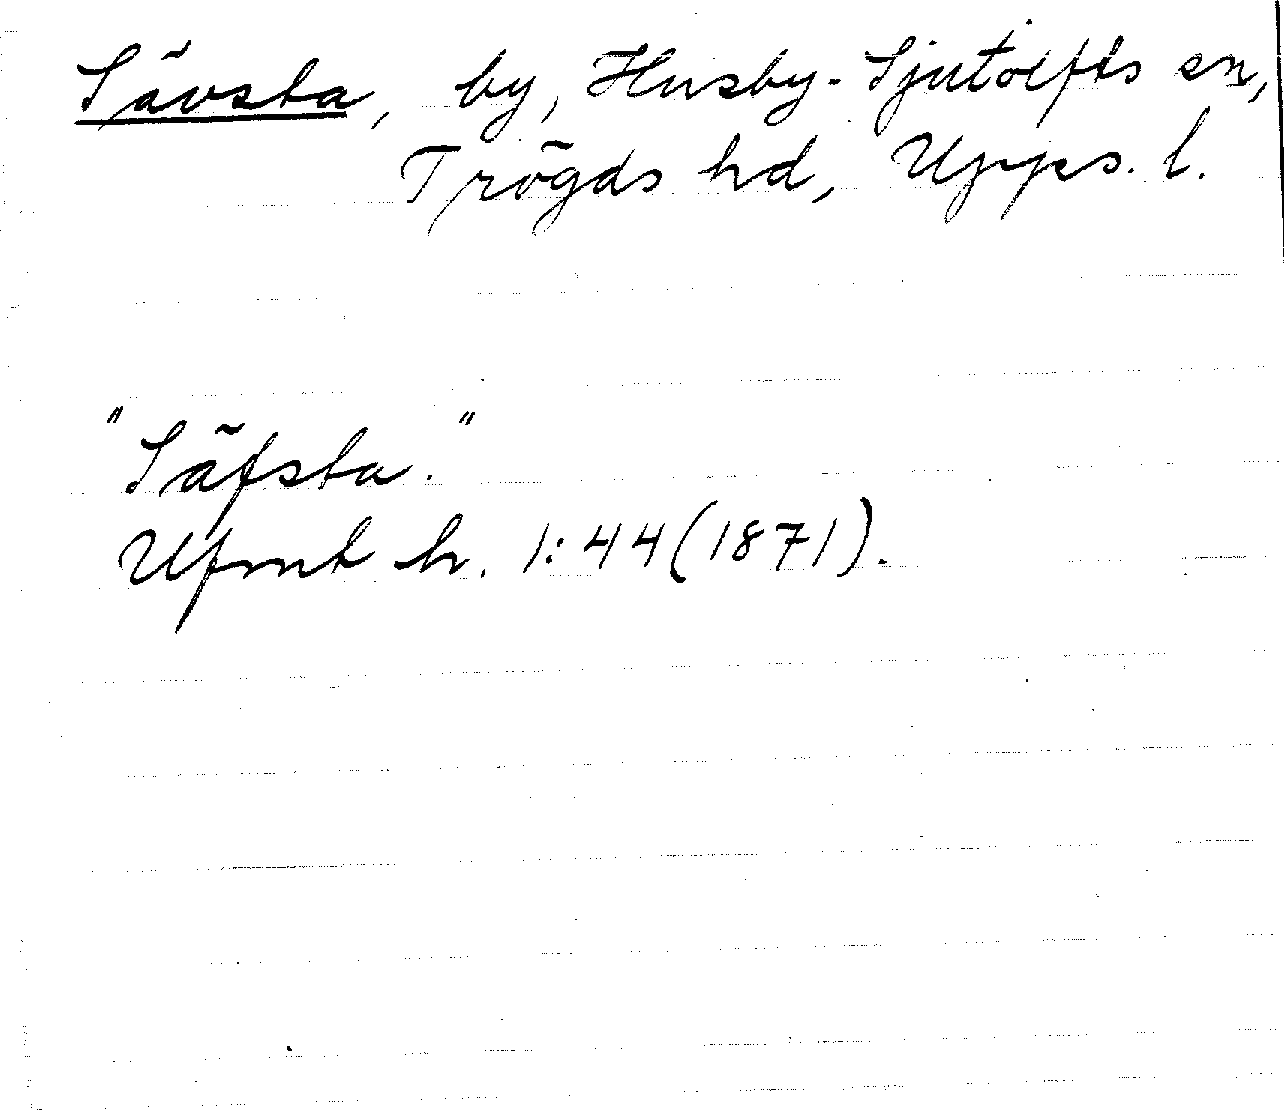 Sävsta, by, Husby-Sjutolfts sn,
Trögds hd, Upps. l.
"Säfsta."
Ufmt h. 1:44(1871).